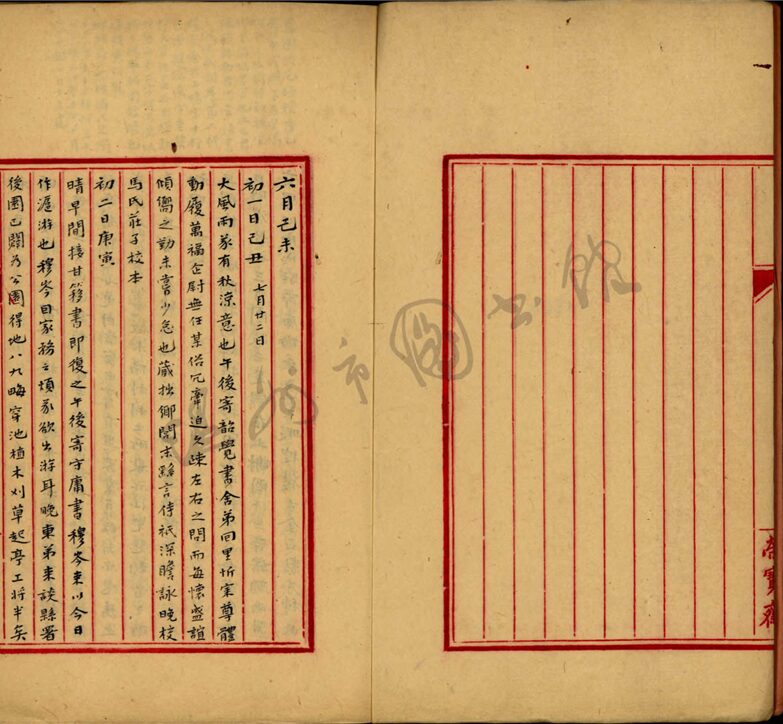 六月己未
初一日己丑 七月廿二日
大風雨家有秋涼意也午後寄韶覺書舍弟回里忻寀尊體
動履萬福企尉無任某俗冗牽迫久疎左右之問而每懷盛誼
傾嚮之勤未嘗少怠也藏拙鄉閭未繇言侍祇深瞻詠晚校
馬氏莊子校本
初二日庚寅
晴早間接甘簃書即復之午後寄守庸書穆岑來以今日
作滬游也穆岑因家務之煩欲出游耳晚東弟來談縣署
後園已闢為公園得地八九畮穿池植木刈草起亭工將半矣
榮寶齋